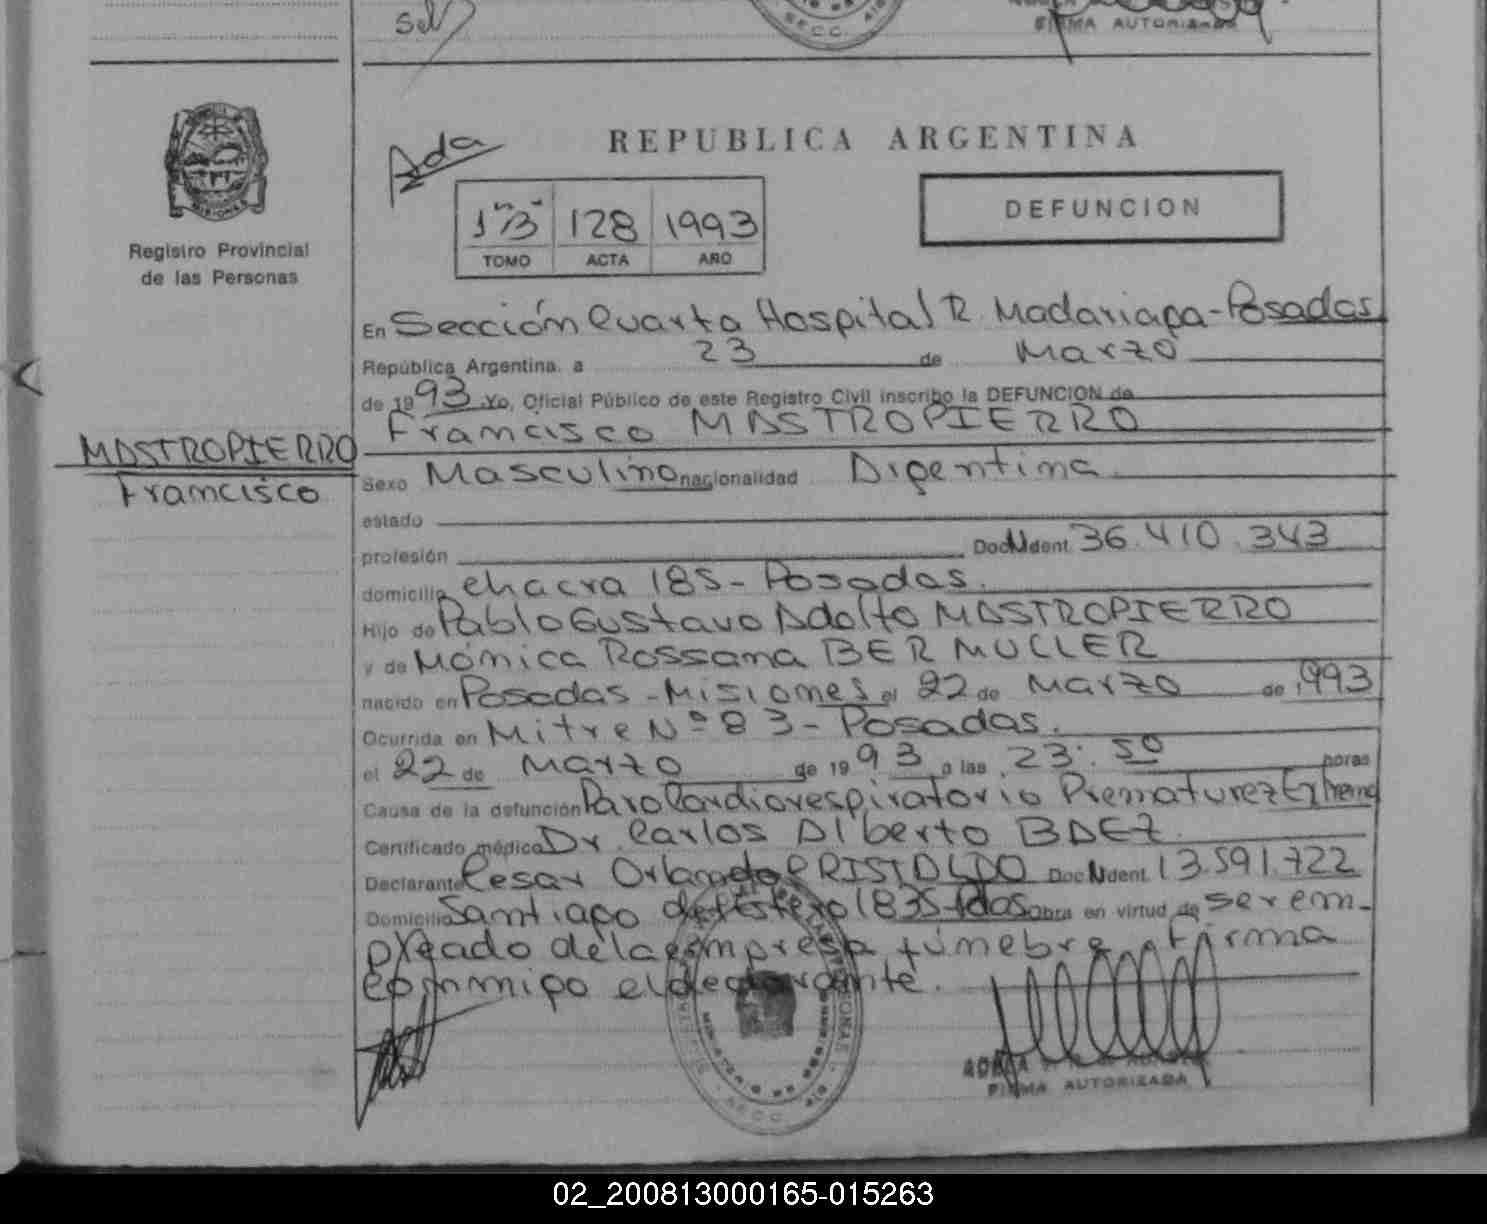 FIRMA AUTORIZADA
REPUBLICA ARGENTINA
DEFUNCION
128 1993
TOMO ACTA AÑO
MISIONES
Registro Provincial
de las Personas
En Sección Quarta Hospital R. Madariaga - Posadas
República Argentina, a 23 de Marzo
de 1993 Yo, Oficial Público de este Registro Civil inscribo la DEFUNCION de
Francisco MASTROPIERRO
MASTROPIERRO
Francisco
Sexo Masculino nacionalidad Argentina
estado
profesión Doc. N. Ident. 36.410.343
domicilio chacra 185 - Posadas.
Hijo de Pablo Gustavo Adolfo MASTROPIERRO
y de Mónica Rossana BERMULLER
nacido en Posadas - Misiones el 22 de Marzo de 1993
Ocurrida en Mitre Nº 83 - Posadas.
el 22 de Marzo de 1993 a las 23:50 horas
Causa de la defunción Paro Cardiorespiratorio Prematurez Extrema
Certificado médico Dr. Carlos Alberto BAEZ.
Declarante Cesar Orlando CRISTALDO Doc N Ident 13.591.722
Domicilio Santiago del Estero 1835 - Pdas Obra en virtud de ser em-
pleado de la empresa fúnebre. Firma
conmigo el declarante.
FIRMA AUTORIZADA
02_200813000165-015263